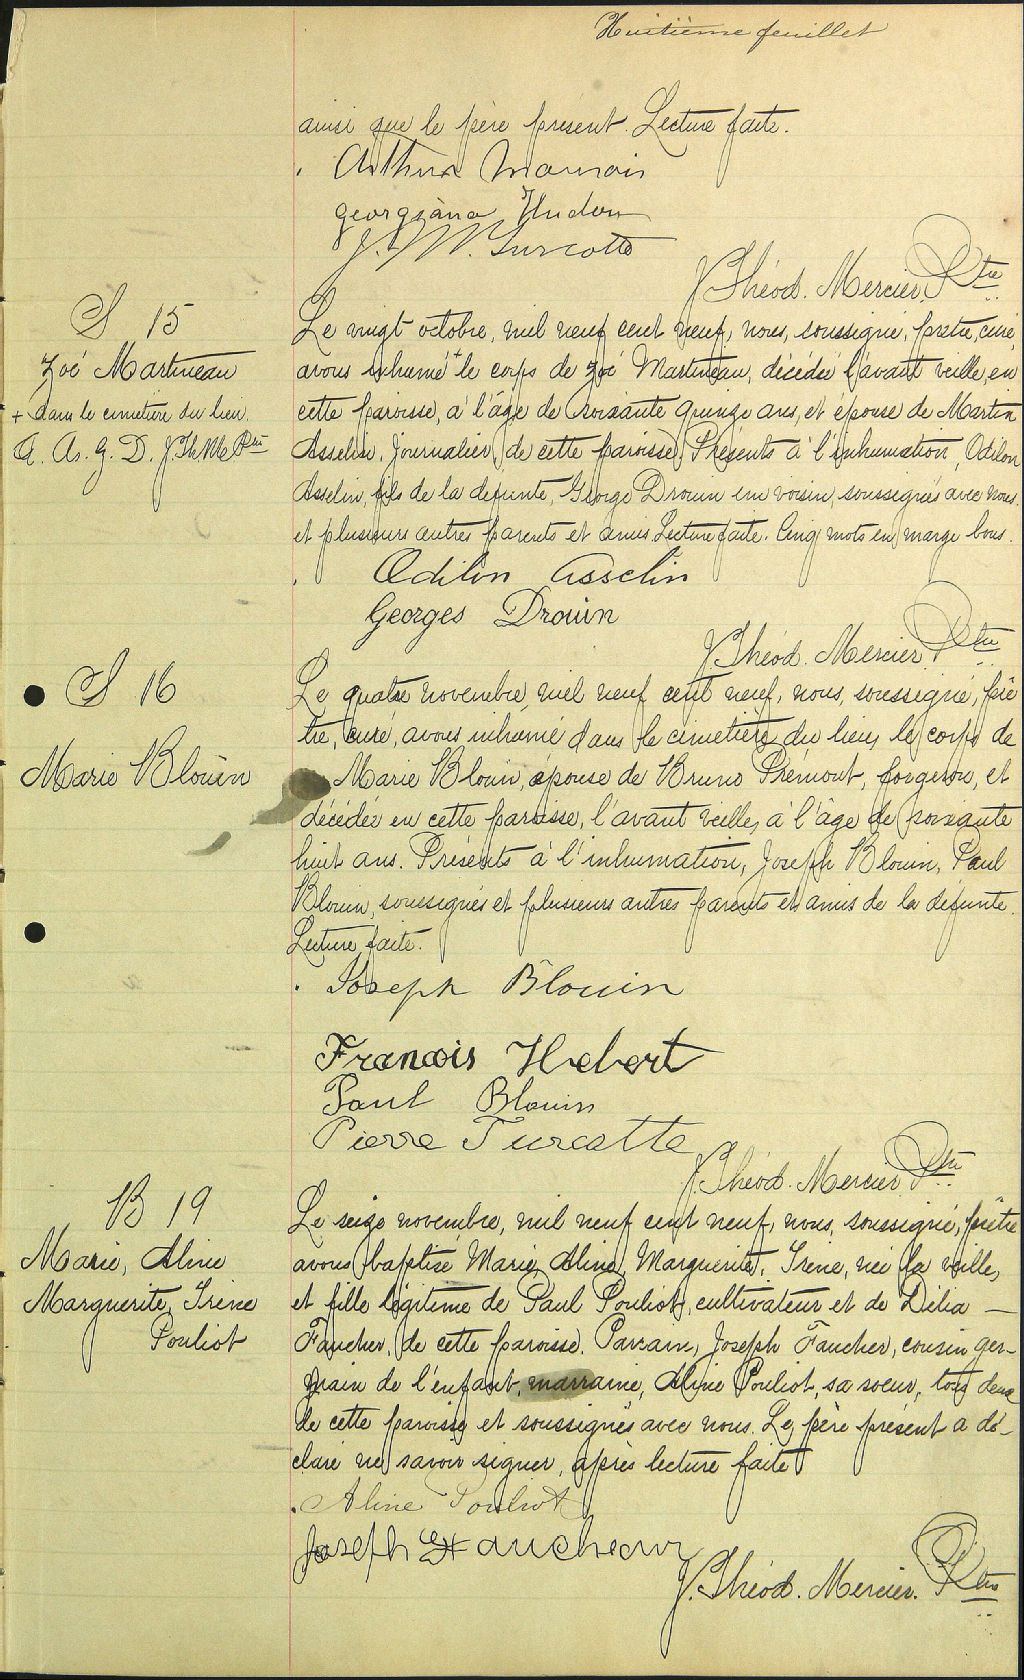 Huitième feuillet
ainsi que le père présent. Lecture faite.
Arthur Marsais
georgiana Hudon
J. W. Turcotte
J. Théod. Mercier, Ptre
S 15
Zoé Martineau
+ dans le cimetière du lieu.
A. As. G. D. J. Th. M. Ptre
Le vingt octobre, mil neuf cent neuf, nous, soussigné, prêtre, curé,
avons inhumé + le corps de Zoé Martineau, décédée l'avant veille, en
cette paroisse, à l'âge de soixante quinze ans, et épouse de Martin
Asselin, journalier, de cette paroisse. Présents à l'inhumation, Odilon
Asselin, fils de la défunte, George Drouin un voisin, soussignés avec nous
et plusieurs autres parents et amis. Lecture faite. Cinq mots en marge bons.
Odilon Asselin
Georges Drouin
J. Théod. Mercier, Ptre
S 16
Marie Blouin
Le quatre novembre, mil neuf cent neuf, nous, soussigné, prê
tre, curé, avons inhumé dans le cimetière du lieu, le corps de
Marie Blouin, épouse de Bruno Prémont, forgeron, et
décédée en cette paroisse, l'avant veille, à l'âge de soixante
huit ans. Présents à l'inhumation, Joseph Blouin, Paul
Blouin, soussignés et plusieurs autres parents et amis de la défunte.
Lecture faite.
Joseph Blouin
Francois Hebert
Paul Blouin
Pierre Turcotte
J. Théod. Mercier Ptre
B 19
Marie, Aline
Marguerite, Irène
Pouliot
Le seize novembre, mil neuf cent neuf, nous, soussigné, prêtre
avons baptisé Marie, Aline, Marguerite, Irène, née la veille,
et fille légitime de Paul Pouliot, cultivateur et de Délia —
Faucher, de cette paroisse. Parrain, Joseph Faucher, cousin ger-
main de l'enfant, marraine, Aline Pouliot, sa soeur, tous deux
de cette paroisse et soussignés avec nous. Le père présent a dé-
claré ne savoir signer, après lecture faite
Aline Pouliot
Joseph Faucheur
J. Théod. Mercier. Ptre